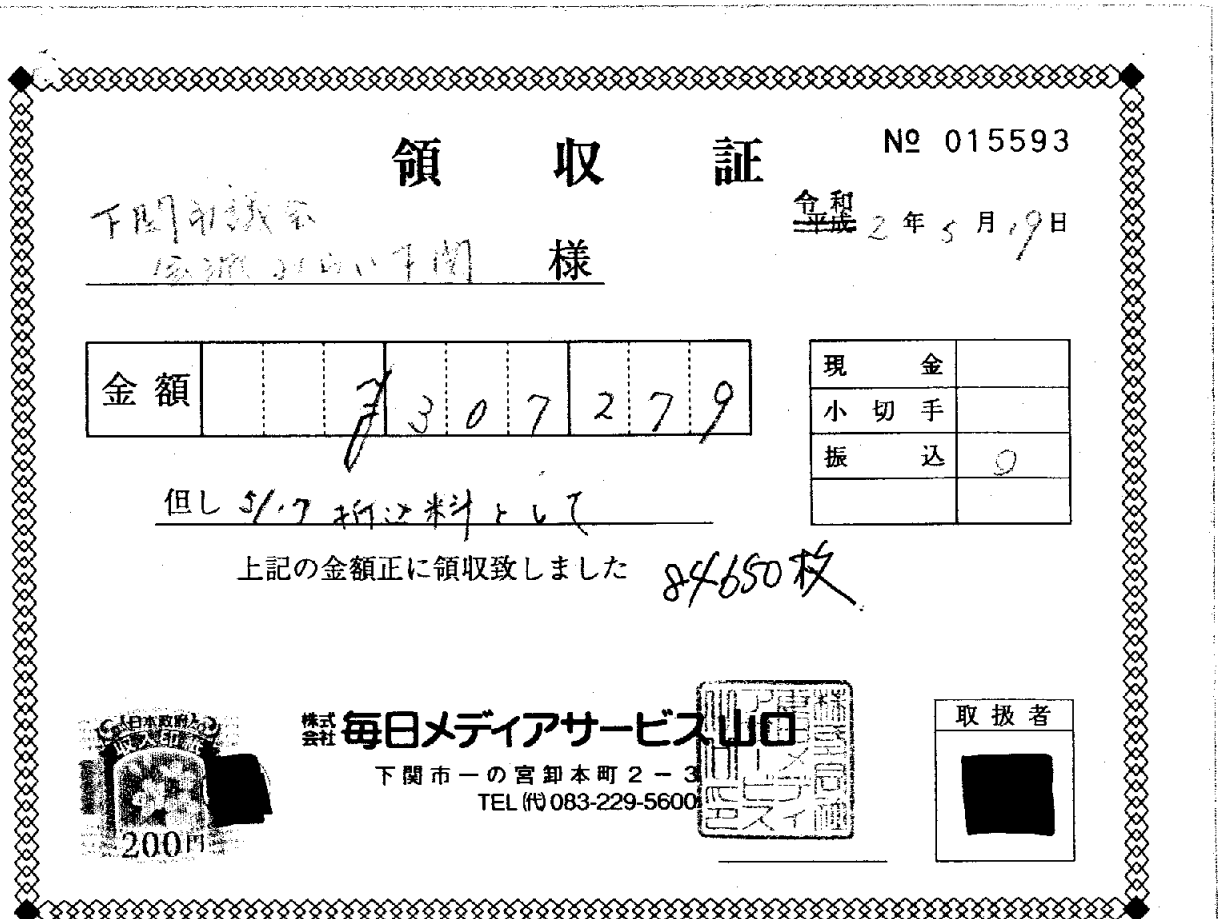 領収証
№ 015593
令和
平成 2年5月19日
下関市議会
会派みらい下関 様
金額 ¥307279
現金
小切手
振込 ○
但し 5/17 折込料として
上記の金額正に領収致しました
84650枚
日本政府
収入印紙
200円
株式会社 毎日メディアサービス山口
下関市一の宮卸本町2-3
TEL(代)083-229-5600
株式会社毎日メディアサービス山口
取扱者